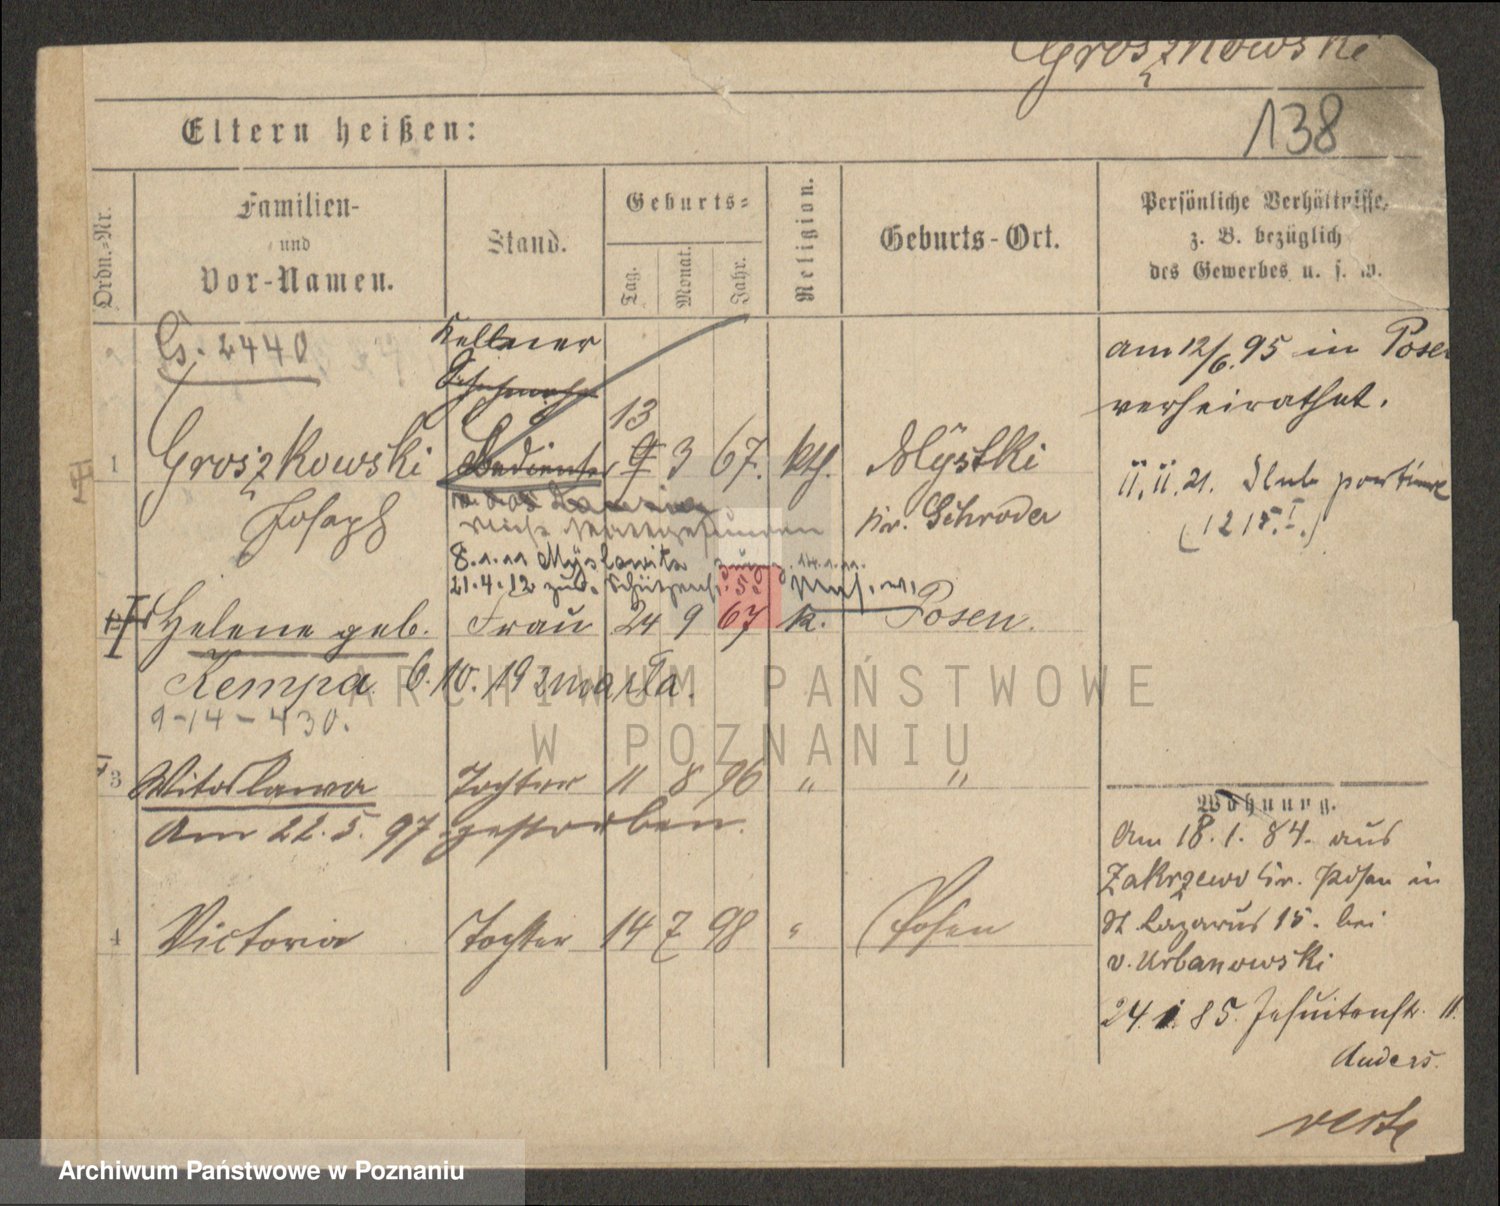 Groszkowski
138
Eltern heißen:
Ordn.-Nr.
Familien-
und
Vor-Namen.
Stand.
Geburts-
Tag.
Monat.
Jahr.
Religion.
Geburts-Ort.
Persönliche Verhältnisse,
z. B. bezüglich
des Gewerbes u. s. w.
G. 2440
Kellner
am 12/6. 95 in Posen
verheirathet.
1 Groszkowski Bedienter 13 9 3 67. kth. Mystki
Joseph
Kr. Schroda
11.11.21.
8.1.11 Myslowitz
21.4.12
Helene geb. Frau 24 9 67 k. Posen.
Kempa. 6.10.19 zmarła.
9-14-430.
3 Witoslawa Tochter 11 8 96 " "
Am 22.5.97 gestorben.
4 Victoria Tochter 14 7 98 " Posen
Wohnung.
Am 18.1.84. aus
Zakrzewo Kr. Posen in
St Lazarus 15. bei
v. Urbanowski
24.1.85. Jesuitenstr. 11.
Anders.
verte
ARCHIWUM PAŃSTWOWE
W POZNANIU
Archiwum Państwowe w Poznaniu